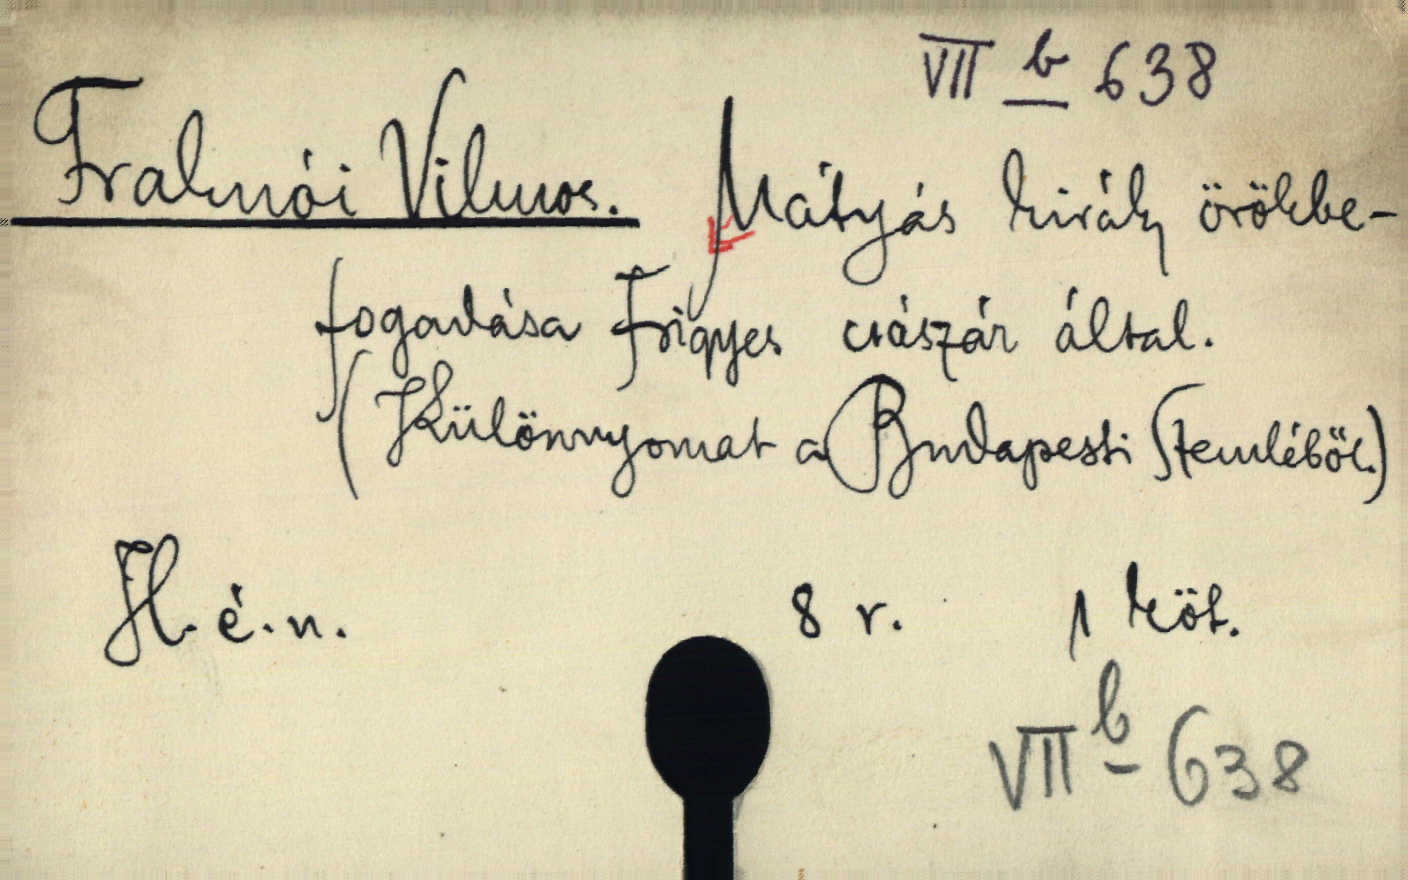 VII b 638
Fraknói Vilmos. Mátyás király örökbe-
fogadása Frigyes császár által.
(Különnyomat a Budapesti Szemléből.)
H. é. n. 8 r. 1 köt.
VII b 638